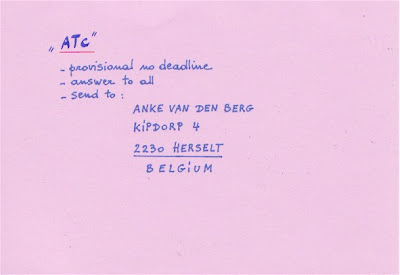 „ATc"
- provisional no deadline
- answer to all
- send to :
ANKE VAN DEN BERG
KiPDORP 4
2230 HERSELT
BELGiUM